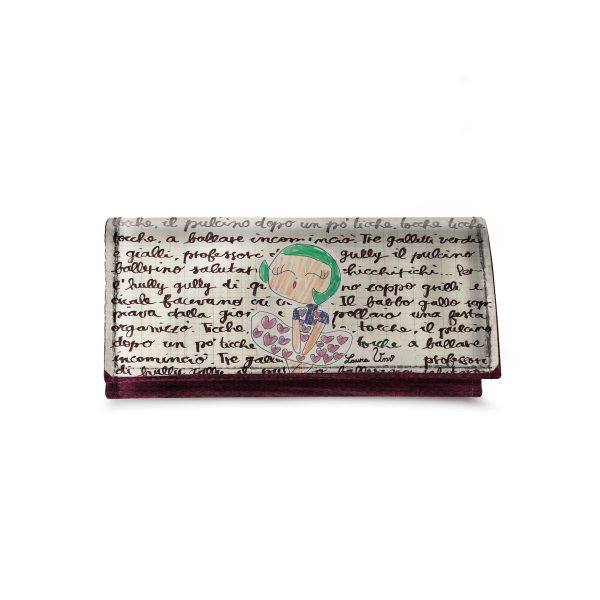 tocche, il pulcino dopo un po' ticche, tocche ticche
tocche, a ballare incominciò. Tre galletti verdi
e gialli, professori gully, il pulcino
ballerino salutar chicchirichi. Per
l'hully gully di qu no zoppo grilli e
cicale facevano Il babbo gallo
dalla gior pollaio una festa
organizzò. Ticche tocche, il pulcino
dopo un po' ticche tocche a ballare
incominciò. Tre galle professori
Laura Vivo
di hully